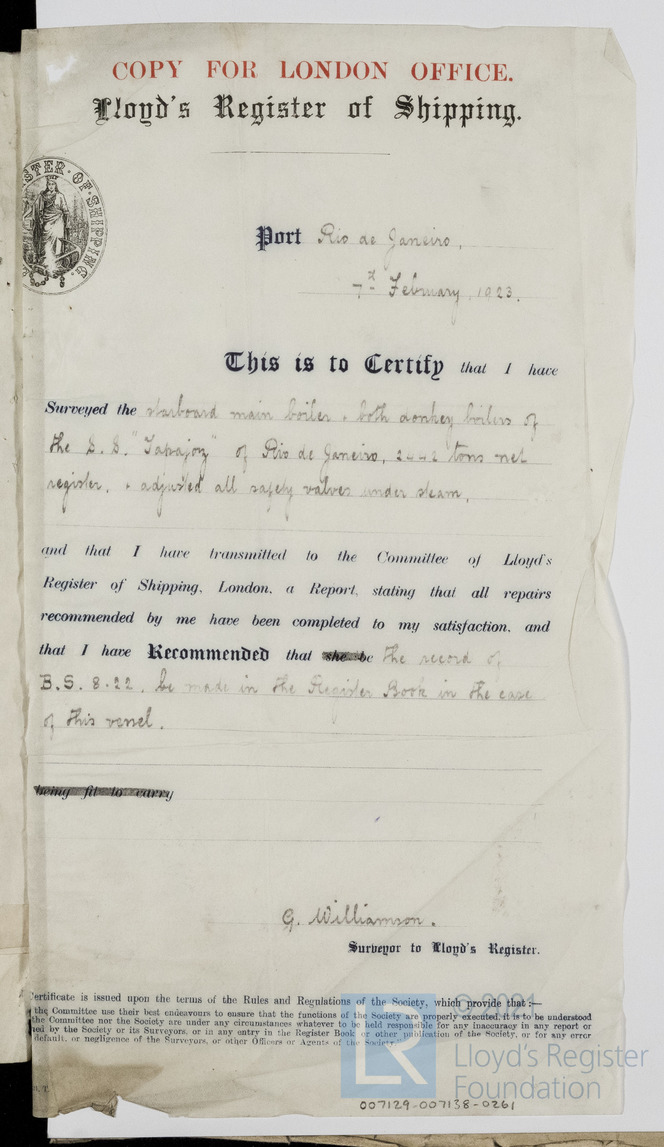 COPY FOR LONDON OFFICE.
Lloyd's Register of Shipping.
STER·OF·SHIPPING.
Port Rio de Janeiro,
7th February, 1923.
This is to Certify that I have
Surveyed the starboard main boiler & both donkey boilers of
the S.S. "Tapajoz" of Rio de Janeiro, 2442 tons net
register, & adjusted all safety valves under steam,
and that I have transmitted to the Committee of Lloyd's
Register of Shipping, London, a Report, stating that all repairs
recommended by me have been completed to my satisfaction, and
that I have Recommended that she be the record of
B.S. 8.22, be made in the Register Book in the case
of this vessel.
being fit to carry
G. Williamson.
Surveyor to Lloyd's Register.
ertificate is issued upon the terms of the Rules and Regulations of the Society, which provide that:—
the Committee use their best endeavours to ensure that the functions of the Society are properly executed, it is to be understood
the Committee nor the Society are under any circumstances whatever to be held responsible for any inaccuracy in any report or
ued by the Society or its Surveyors, or in any entry in the Register Book or other publication of the Society, or for any error
default, or negligence of the Surveyors, or other Officers or Agents of the Society.
© 2021
LR
Lloyd's Register
Foundation
007129-007138-0261